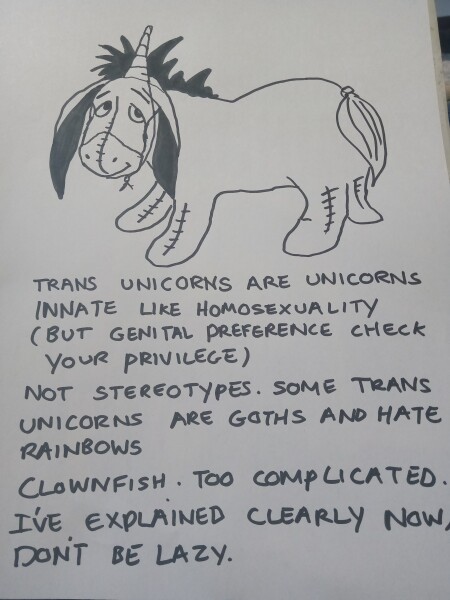 TRANS UNICORNS ARE UNICORNS
INNATE LIKE HOMOSEXUALITY
(BUT GENITAL PREFERENCE CHECK
YOUR PRIVILEGE)
NOT STEREOTYPES. SOME TRANS
UNICORNS ARE GOTHS AND HATE
RAINBOWS
CLOWNFISH. TOO COMPLICATED.
I'VE EXPLAINED CLEARLY NOW,
DON'T BE LAZY.